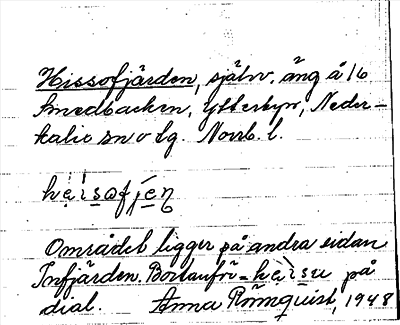 Hissofjärden, självv. äng å 16
Smedbacken, Ytterbyn, Neder-
kalix sn o tg. Norrb. l.
hẹ̀ɩsωfjén
Området ligger på andra sidan
Infjärden. Bortanför = hẹ̀ɩsu på
dial. Anna Rönnquist, 1948